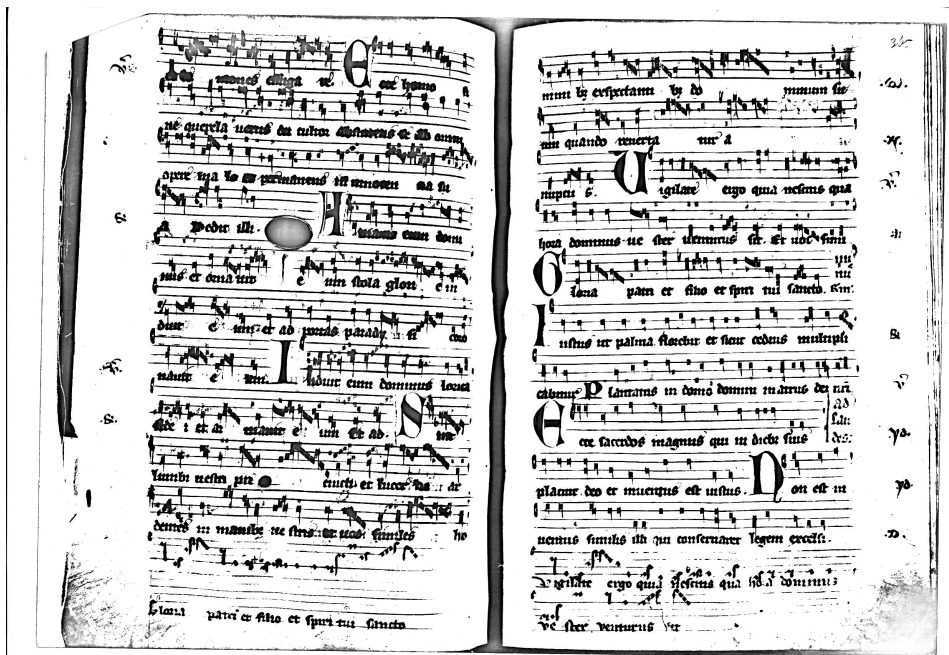 mones elliga vt. Ecce homo si
ne querela uerus dei cultor abstinens se ab omni
opere ma lo et permanens in innocen cia su
a Pedir illi. Amauit eum domi
nus et orna uit e um stola glori e in
duit e um et ad portas parady si coro
nauit e um. Induit eum dominus lorica
fidei et or nauit e um Et ad. Sint
lumbi uestri pre cincti et lucer ne ar
dentes in manibz ue stris et uos similes ho
Gloria patri et filio et spiri tui sancto
mini bz expectanti bz do minum su
um quando reuerta tur a
nupcii s. Uigilate ergo quia nescitis qua
hora dominus ue ster uenturus sit. Et uos simi
Gloria patri et filio et spiri tui sancto.
Iustus ut palma florebit et sicut cedrus multipli
cabitur Plantatus in domo domini in atriis dei nri
Ecce sacerdos magnus qui in diebz suis
placuit deo et inuentus est iustus. Non est in
uentus similis illi qui conseruaret legem excelsi.
Vigilate ergo quia nescitis qua hora dominus
ve ster venturus sit